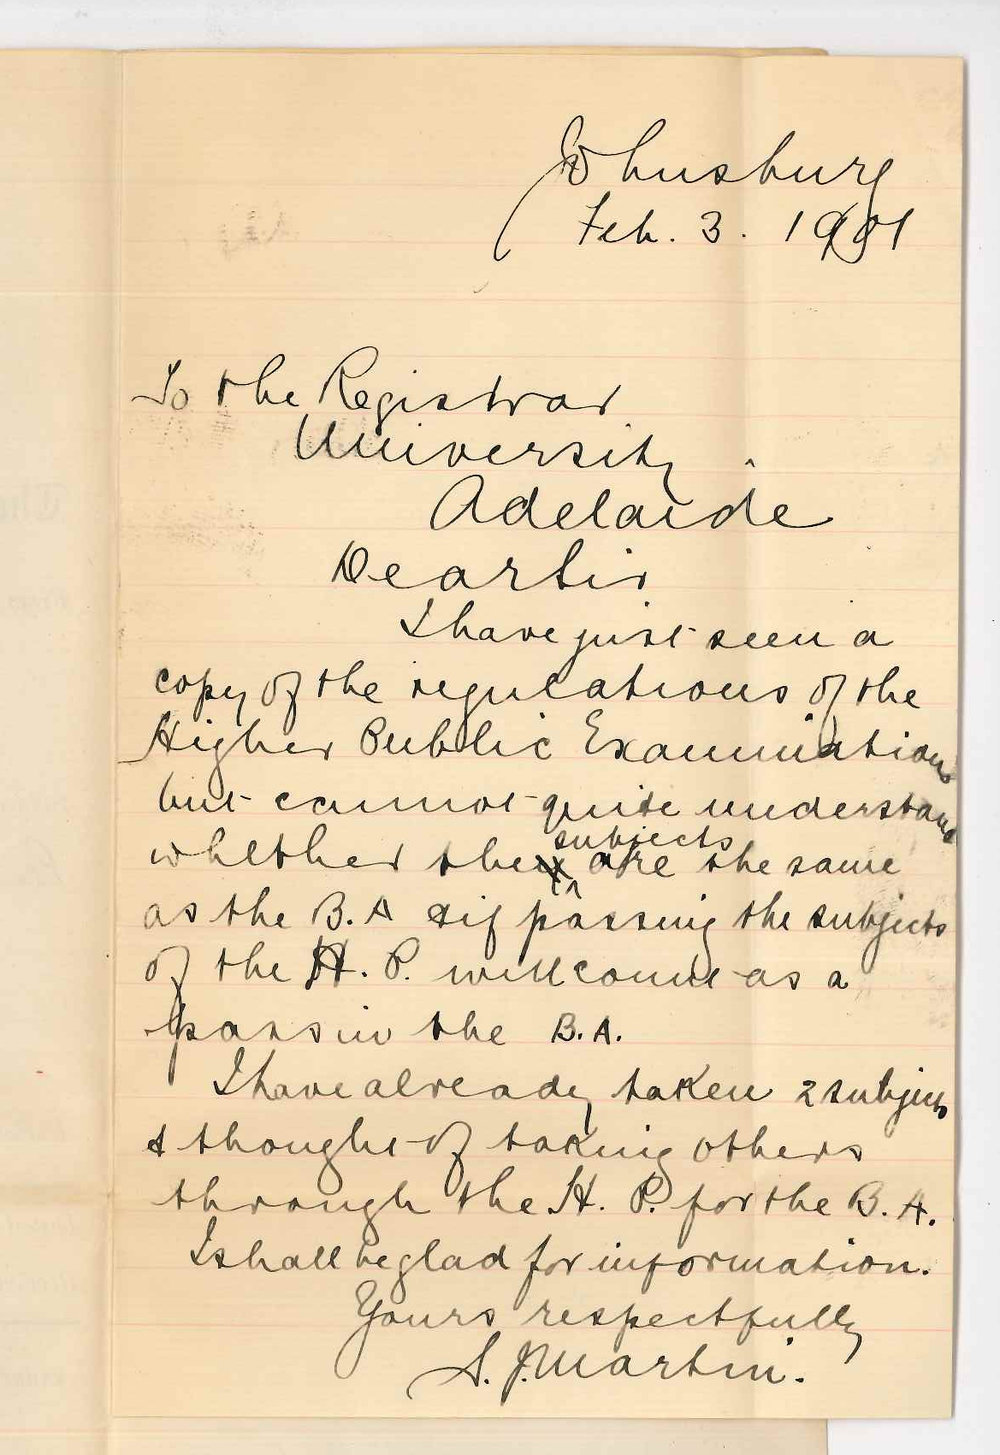 Johnsburg
Feb. 3. 1901
To the Registrar
University
Adelaide
Dear Sir
I have just seen a
copy of the regulations of the
Higher Public Examinations
but cannot quite understand
whether the subjects are the same
as the B. A & if passing the subjects
of the H. P. will count as a
pass in the B.A.
I have already taken 2 subjects
& thought of taking others
through the H. P. for the B. A.
I shall be glad for information.
Yours respectfully
S. J. Martin.